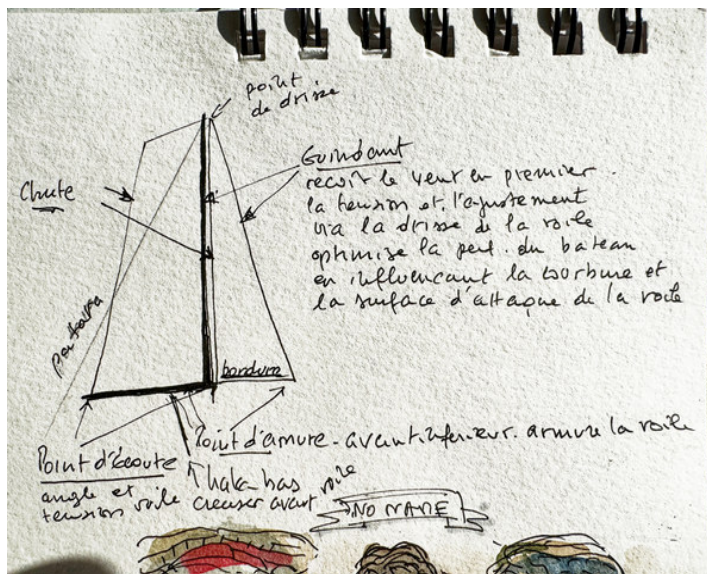 point
de drisse
Guindant
reçoit le vent en premier.
la tension et l'ajustement
via la drisse de la voile
optimise la perf. du bateau
en influençant la courbure et
la surface d'attaque de la voile
Chute
patara
bordure
Point d'amure - avant inférieur. armure la voile
Point d'écoute
angle et
tension voile
hala bas
creuser avant voile
NO NAME